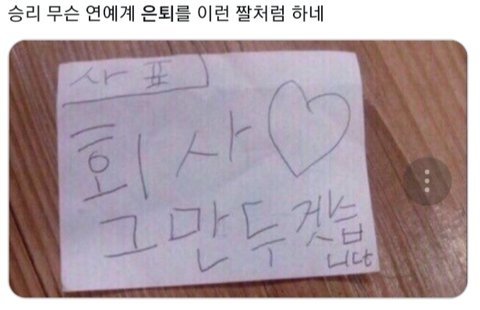 승리 무슨 연예계 은퇴를 이런 짤처럼 하네
사표
회사♡
그만두겟습
니다